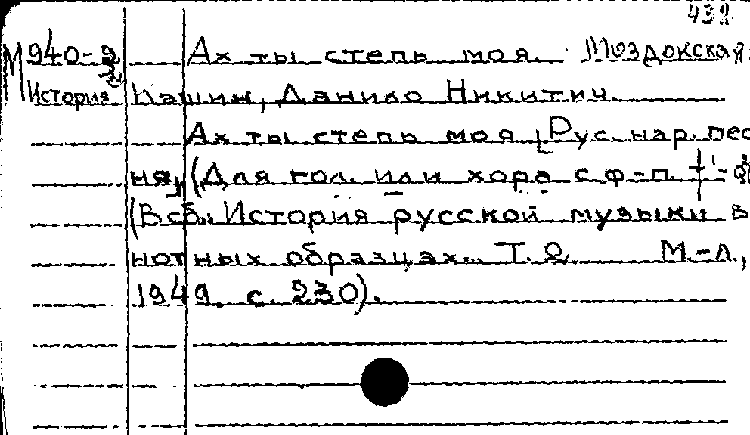 432
М940-2 Ах ты степь моя. Моздокская
История Кашин, Данило Никитич.
Ах ты степь моя [Рус. нар. пес
ня] (Для гол. или хора с ф-п.
(В сб. История русской музыки в
нотных образцах. Т. 2. М.-Л.,
1949. с. 230).